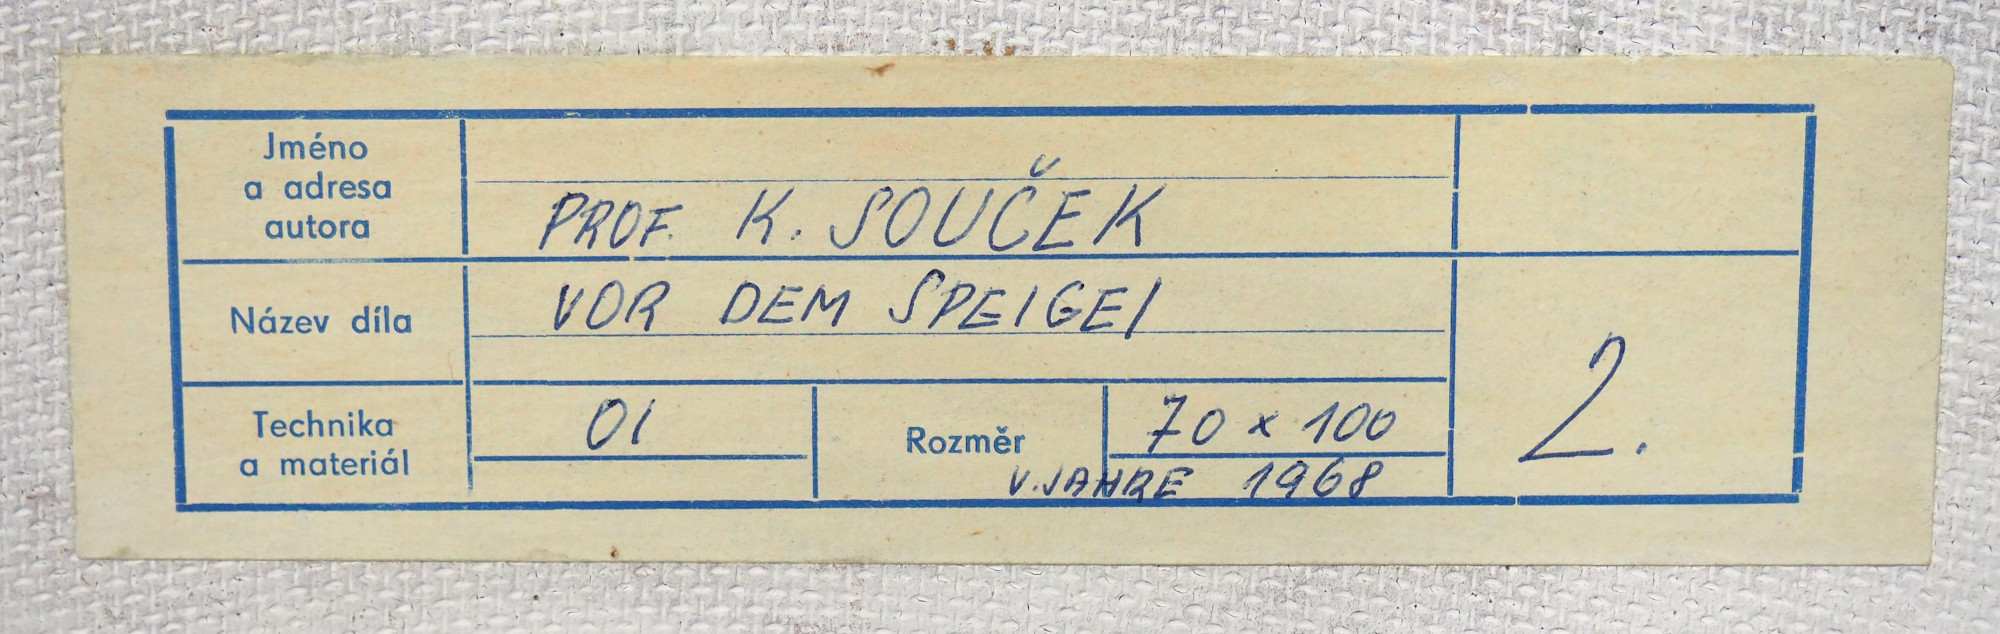 Jméno
a adresa
autora
PROF. K. SOUČEK
Název díla
VOR DEM SPEIGEl
Technika
a materiál
Ol
Rozměr
70 x 100
V. JAHRE 1968
2.